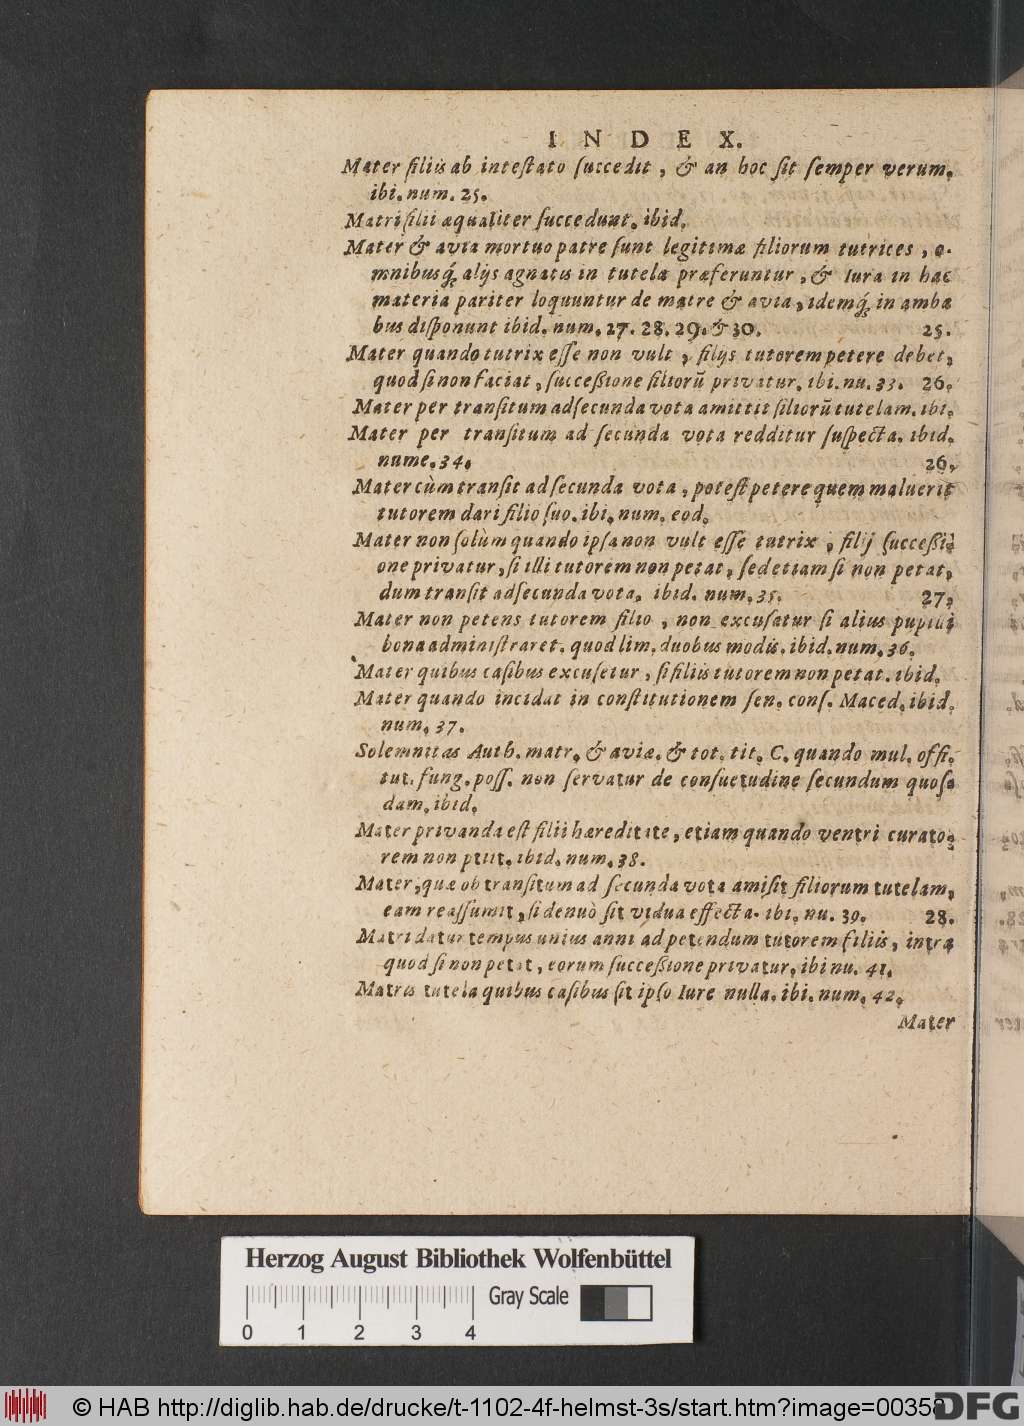 INDEX.
Mater filiis ab inteſtato ſuccedit, & an hoc ſit ſemper verum,
ibi. num. 25.
Matri filii æqualiter ſuccedunt. ibid.
Mater & avia mortuo patre ſunt legitimæ filiorum tutrices, o-
mnibusq́; alijs agnatis in tutela præferuntur, & Iura in hac
materia pariter loquuntur de matre & avia, idemq́; in amba
bus diſponunt ibid. num. 27. 28. 29. & 30. 25.
Mater quando tutrix eſſe non vult, filijs tutorem petere debet,
quod ſi non faciat, ſucceßione filiorū privatur. ibi. nu. 33. 26.
Mater per tranſitum ad ſecunda vota amittit filiorū tutelam. ibi.
Mater per tranſitum ad ſecunda vota redditur ſuſpecta. ibid.
nume. 34. 26.
Mater cùm tranſit ad ſecunda vota, poteſt petere quem maluerit
tutorem dari filio ſuo. ibi. num. eod.
Mater non ſolùm quando ipſa non vult eſſe tutrix, filij ſucceßi
one privatur, ſi illi tutorem non petat, ſed etiam ſi non petat,
dum tranſit ad ſecunda vota. ibid. num. 35. 27.
Mater non petens tutorem filio, non excuſatur ſi alius pupilli
bona adminiſtraret. quod lim. duobus modis. ibid. num. 36.
Mater quibus caſibus excuſetur, ſi filiis tutorem non petat. ibid.
Mater quando incidat in conſtitutionem ſen. conſ. Maced. ibid.
num. 37.
Solemnitas Auth. matr. & aviæ. & tot. tit. C. quando mul. offi.
tut. fung. poſſ. non ſervatur de conſuetudine ſecundum quoſ-
dam. ibid.
Mater privanda eſt filii hæreditate, etiam quando ventri curato-
rem non petit. ibid. num. 38.
Mater, quæ ob tranſitum ad ſecunda vota amiſit filiorum tutelam,
eam reaſſumit, ſi denuò ſit vidua effecta. ibi. nu. 39. 28.
Matri datur tempus unius anni ad petendum tutorem filiis, intra
quod ſi non petat, eorum ſucceßione privatur. ibi nu. 41.
Matris tutela quibus caſibus ſit ipſo Iure nulla. ibi. num. 42.
Mater
Herzog August Bibliothek Wolfenbüttel
Gray Scale
0 1 2 3 4
© HAB http://diglib.hab.de/drucke/t-1102-4f-helmst-3s/start.htm?image=00358
DFG